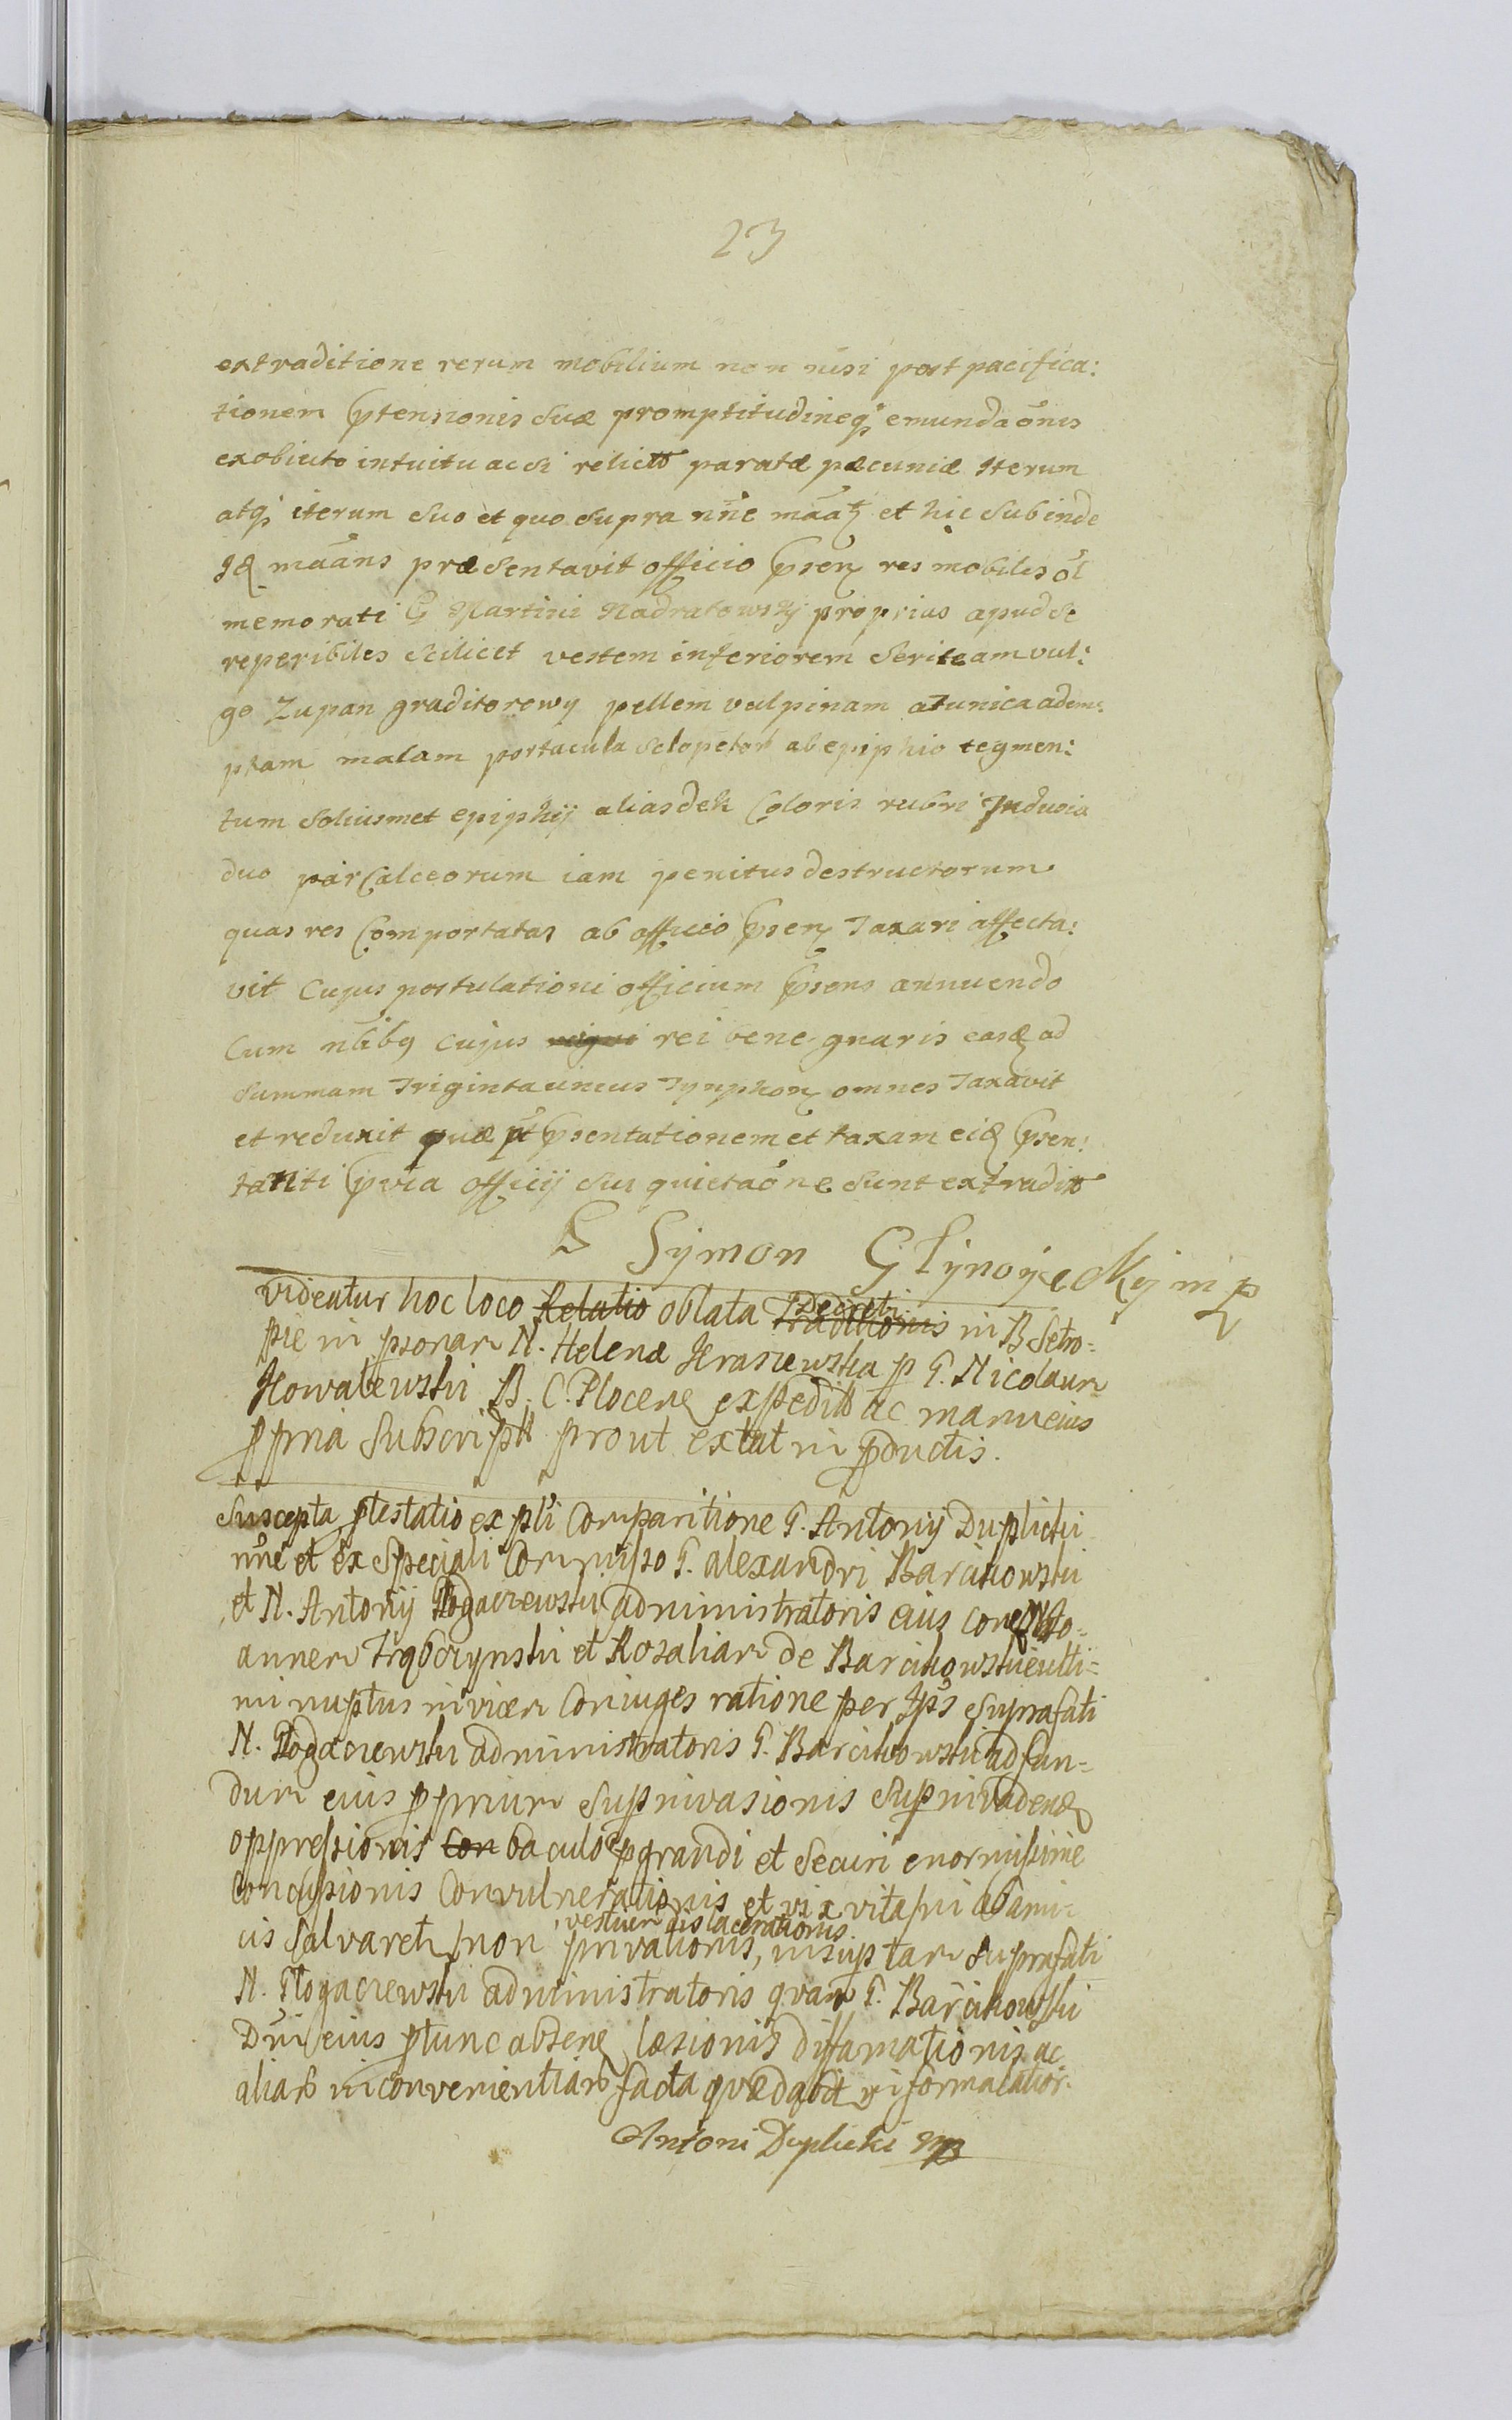 23
extraditione rerum mobilium non nisi post pacifica:
tionem Ptensionis Suæ promptitudineq; emundaõnis
exobiuto intuitu acsi relictæ paratæ pæcuniæ Iterum
atq; iterum Suo et quo Supra nñe mãa et hic Subinde
Id mãans præsentavit officio Psen res mobiles ol
memorati G Martini Nadratowskÿ proprias apud Se
reperibiles Scilicet vestem inferiorem Sericeam vul:
go Zupan graditorowy pellem vulpinam a Tunica adem:
ptam malam portacula Sclopetor ab epiphio tegmen:
tum Soliusmet epiphÿ alias dek Coloris rubri Indusia
duo par Calceorum iam penitus destructorum
quas res Comportatas ab officio Psen Taxari affecta:
vit Cujus postulationi officium Psens annuendo
Cum nbibq Cujus rei bene gnaris easd ad
Summam Triginta Tynphon omnes Taxavit
et reduxit quæ pt Psentationem et taxam eid Psen:
tanti Pvia officÿ Sui quietaõne Sunt extradit
G Sÿmon Glÿnoÿeckÿ mp
videatur hoc loco Relatio oblata Traditionis Decreti in B Setro=
pie in psonam N. Helenæ Krasiewska p G. Nicolaum
Kowalewski B. C. Plocen expedit ac manu eius
ppria Subscript prout extat in pductis.
Suscepta ptestatio ex psli Comparitione G. Antonÿ Duplicki
nñe et ex Speciali Commisso G. alexandri Barcikowski
et N. Antonÿ Rogaczewski administratoris eius con NN Jo=
annem Trąbczynski et Rosaliam de Barcikowskie ulti=
mi nuptus invicem Coniuges ratione per Ips Suprafati
N. Rogaczewski administratoris G. Barcikowski ad fun=
dum eius pprium Supinvasionis Supinvaden
oppressionis Con baculo pgrandi et Securi enormissime
Concussionis Convulnerationis et vix vita ni ab ami=
cis Salvaret non privationis, vestium dislacerationis in Suptam Suprafati
N. Rogaczewski administratoris quam G. Barcikowski
Dni eius ptunc absen læsionis diffamationis ac
aliar inconvenientiar facta quæ dabit informalatior.
Antoni Duplicki mp